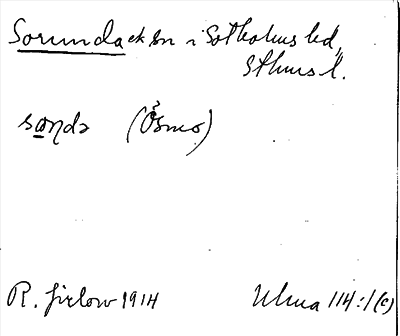 Sorunda ek sn i Sotholms hd,
Sthms l.
sαṇdə (Ösmo)
R. 1914 Ulma 114:1(c)